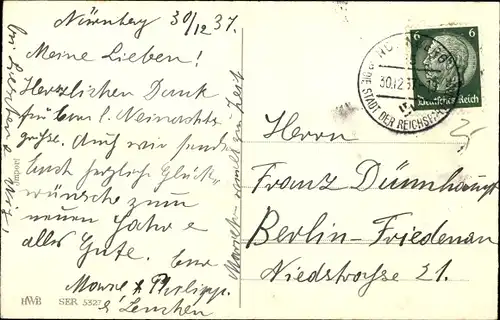 Nürnberg 30/12 37.
Meine Lieben!
Herzlichen Dank
für Eure l. Weinachts
grüsse. Auch wir send
Euch herzliche Glück
wünsche zum
neuen Jahre
alles Gute. Eure
Marie & Philipp.
Lenchen
Import
HWB SER. 5327
6
Deutsches Reich
30.12.37
DIE STADT DER REICHSPARTEI
Herrn
Franz Dünnhaupt
Berlin-Friedenau
Niedstraße 21.